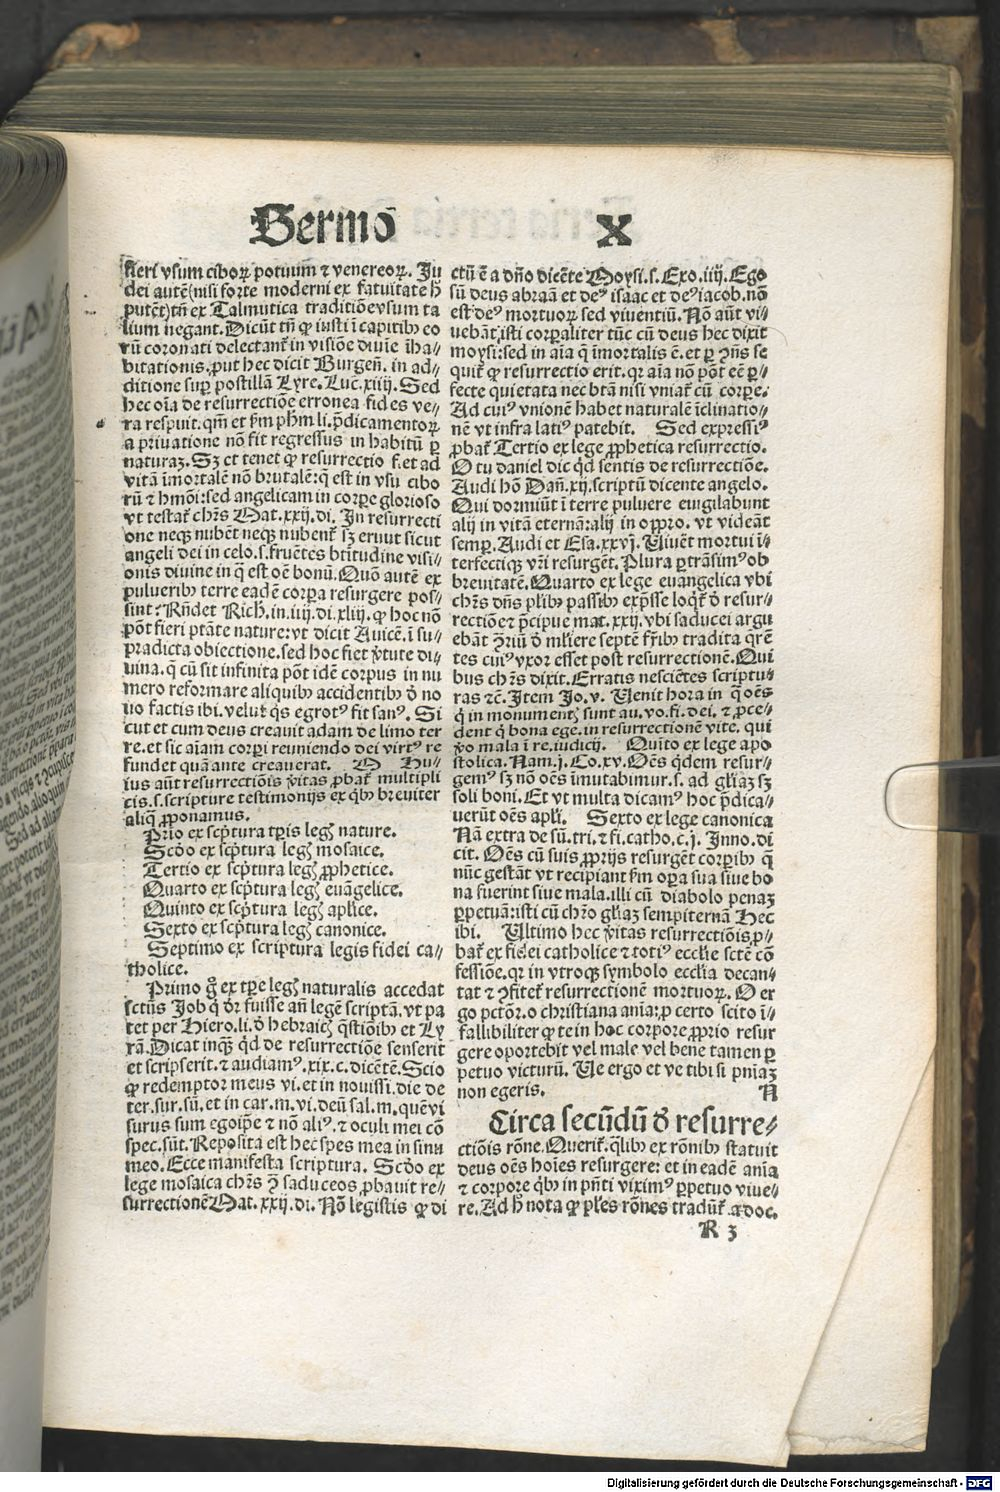 Sermō X
fieri vsum ciboꝝ potuum ⁊ venereoꝝ. Iu
dei autē (nisi forte moderni ex fatuitate ħ
putēt) tñ ex Talmutica traditiōe vsum ta
lium negant. Dicūt tñ ꝙ iusti ī capitibꝰ eo
rū coronati delectant̄ in visiōe diuīe īha/
bitationis. ꝓut hec dicit Burgeñ. in ad/
ditione suꝑ postillā Lyre. Luc̄. xiiij. Sed
hec oīa de resurrectiōe erronea fides ve/
ra respuit. qm̄ et ẜm pħm li. p̄dicamentoꝝ
a priuatione nō fit regressus in habitū ꝑ
naturaꝫ. Sꝫ et tenet ꝙ resurrectio f. et ad
vitā īmortalē nō brutalē: q̄ est in vsu cibo
rū ⁊ hmōi: sed angelicam in corꝑe glorioso
vt testat̄ chr̄s Mat. xxij. di. In resurrecti
one neqꝫ nubēt neqꝫ nubent̄ sꝫ erunt sicut
angeli dei in celo. s. fruētes btitudine visi/
onis diuine in q̄ est oē bonū. Quō autē ex
pulueribꝰ terre eadē corꝑa resurgere pos/
sint? Rñdet Rich̄. in. iiij. di. xliij. ꝙ hoc nō
pōt fieri ptāte nature: vt dicit Auicē. ī su/
pradicta obiectione. sed hoc fiet v̄tute di/
uina. q̄ cū sit infinita pōt idē corpus in nu
mero reformare aliquibꝰ accidentibꝰ đ no
uo factis ibi. velut q̄s egrotꝰ fit sanꝰ. Si
cut et cum deus creauit adam de limo ter
re. et sic aīam corꝑi reuniendo dei virtꝰ re
fundet quā ante creauerat. O Hu/
ius aūt resurrectiōis v̄itas ꝓbat̄ multipli
cis. s. scripture testimonijs ex q̄bꝰ breuiter
aliq̄ ꝓponamus.
Prīo ex scp̄tura tp̄is legꝭ nature.
Scđo ex scp̄tura legꝭ mosaice.
Tertio ex scp̄tura legꝭ ꝓphetice.
Quarto ex scp̄tura legꝭ euāgelice.
Quinto ex scp̄tura legꝭ apl̄ice.
Sexto ex scp̄tura legꝭ canonice.
Septimo ex scriptura legis fidei ca/
tholice.
Primo ḡ ex tꝑe legꝭ naturalis accedat
sctūs Job q̄ dr̄ fuisse añ legē scriptā. vt pa
tet per Hiero. li. đ hebraicꝭ q̄stiōibꝰ et Ly
rā. Dicat inq̄ꝫ qđ de resurrectiōe senserit
et scripserit. ⁊ audiamꝰ. xix. c. dicētē. Scio
ꝙ redemptor meus vi. et in nouissi. die de
ter. sur. sū. et in car. m. vi. deū sal. m. quē vi
surus sum ego ip̄e ⁊ nō aliꝰ. ⁊ oculi mei cō
spec. sūt. Reposita est hec spes mea in sinu
meo. Ecce manifesta scriptura. Scđo ex
lege mosaica chr̄s ꝯ̄ saduceos ꝓbauit re/
surrectionē Mat. xxij. di. Nō legistis ꝙ di
ctū ē a dño dicēte Moysi. s. Exo. iiij. Ego
sū deus abraā et deꝰ isaac et deꝰ iacob. nō
est deꝰ mortuoꝝ sed viuentiū. Nō aūt vi/
uebāt isti corꝑaliter tūc cū deus hec dixit
moysi: sed in aīa q̄ īmortalis ē. et ꝑ ꝯñs se
quit̄ ꝙ resurrectio erit. qꝛ aīa nō pōt eē ꝑ/
fecte quietata nec btā nisi vniat̄ cū corꝑe.
Ad cuiꝰ vnionē habet naturalē īclinatio/
nē vt infra latiꝰ patebit. Sed expressiꝰ
ꝓbat̄ Tertio ex lege ꝓphetica resurrectio.
O tu daniel dic qđ sentis de resurrectiōe.
Audi hō Dañ. xij. scriptū dicente angelo.
Qui dormiūt ī terre puluere euigilabunt
alij in vitā eternā: alij in oppro. vt videāt
semꝑ. Audi et Esa. xxvj. Viuēt mortui ī/
terfectiqꝫ vr̄i resurgēt. Plura ꝑtrāsimꝰ ob
breuitatē. Quarto ex lege euangelica vbi
chr̄s dñs pl̄ibꝰ passibꝰ exp̄sse loqt̄ đ resur/
rectiōe ⁊ p̄cipue mat. xxij. vbi saducei argu
ebāt ꝯ̄riū đ mliere septē fr̄ibꝰ tradita q̄rē
tes cuiꝰ vxor esset post resurrectionē. Qui
bus chr̄s dixit. Erratis nesciētes scriptu/
ras ⁊c. Item Jo. v. Uenit hora in q̄ oēs
q̄ in monumentꝭ sunt au. vo. fi. dei. ⁊ ꝓce/
dent q̄ bona ege. in resurrectionē vite. qui
v̄o mala ī re. iudicij. Quīto ex lege apo
stolica. Nam. j. Co. xv. Oēs q̄dem resur/
gemꝰ sꝫ nō oēs īmutabimur. s. ad gl̄iaꝫ sꝫ
soli boni. Et vt multa dicamꝰ hoc p̄dica/
uerūt oēs apl̄i. Sexto ex lege canonica
Nā extra de sū. tri. ⁊ fi. catho. c. j. Inno. di
cit. Oēs cū suis ꝓprijs resurgēt corꝑibꝰ q̄
nūc gestāt vt recipiant ẜm oꝑa sua siue bo
na fuerint siue mala. illi cū diabolo penaꝫ
ꝑpetuā: isti cū chr̄o gl̄iaꝫ sempiternā Hec
ibi. Ultimo hec v̄itas resurrectiōis ꝓ/
bat̄ ex fidei catholice ⁊ totiꝰ eccl̄ie sctē cō
fessiōe. qꝛ in vtroqꝫ symbolo eccl̄ia decan/
tat ⁊ ꝯfitet̄ resurrectionē mortuoꝝ. O er
go pctōꝛ. o christiana anīa: ꝓ certo scito ī/
fallibiliter ꝙ te in hoc corpore ꝓprio resur
gere oportebit vel male vel bene tamen ꝑ
petuo victurū. Ue ergo et ve tibi si pn̄iaꝫ
non egeris. N
Circa secūdū đ resurre/
ctiōis rōne. Querit̄. q̄libꝰ ex rōnibꝰ statuit
deus oēs hoīes resurgere: et in eadē anīa
⁊ corpore q̄bꝰ in pn̄ti viximꝰ ꝑpetuo viue/
re. Ad ħ nota ꝙ pl̄es rōnes tradūt̄ a doc.
R 3
Digitalisierung gefördert durch die Deutsche Forschungsgemeinschaft - DFG